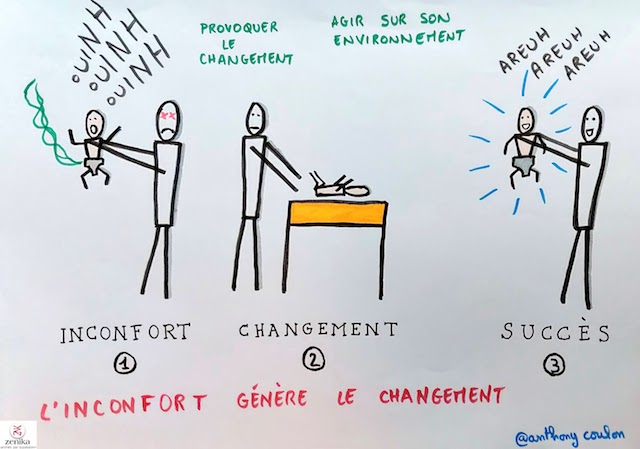 OUINH
OUINH
OUINH
PROVOQUER
LE
CHANGEMENT
AGIR SUR SON
ENVIRONNEMENT
AREUH
AREUH
AREUH
INCONFORT
CHANGEMENT
SUCCÈS
1
2
3
L'INCONFORT GÉNÈRE LE CHANGEMENT
@anthony coulon
zenika